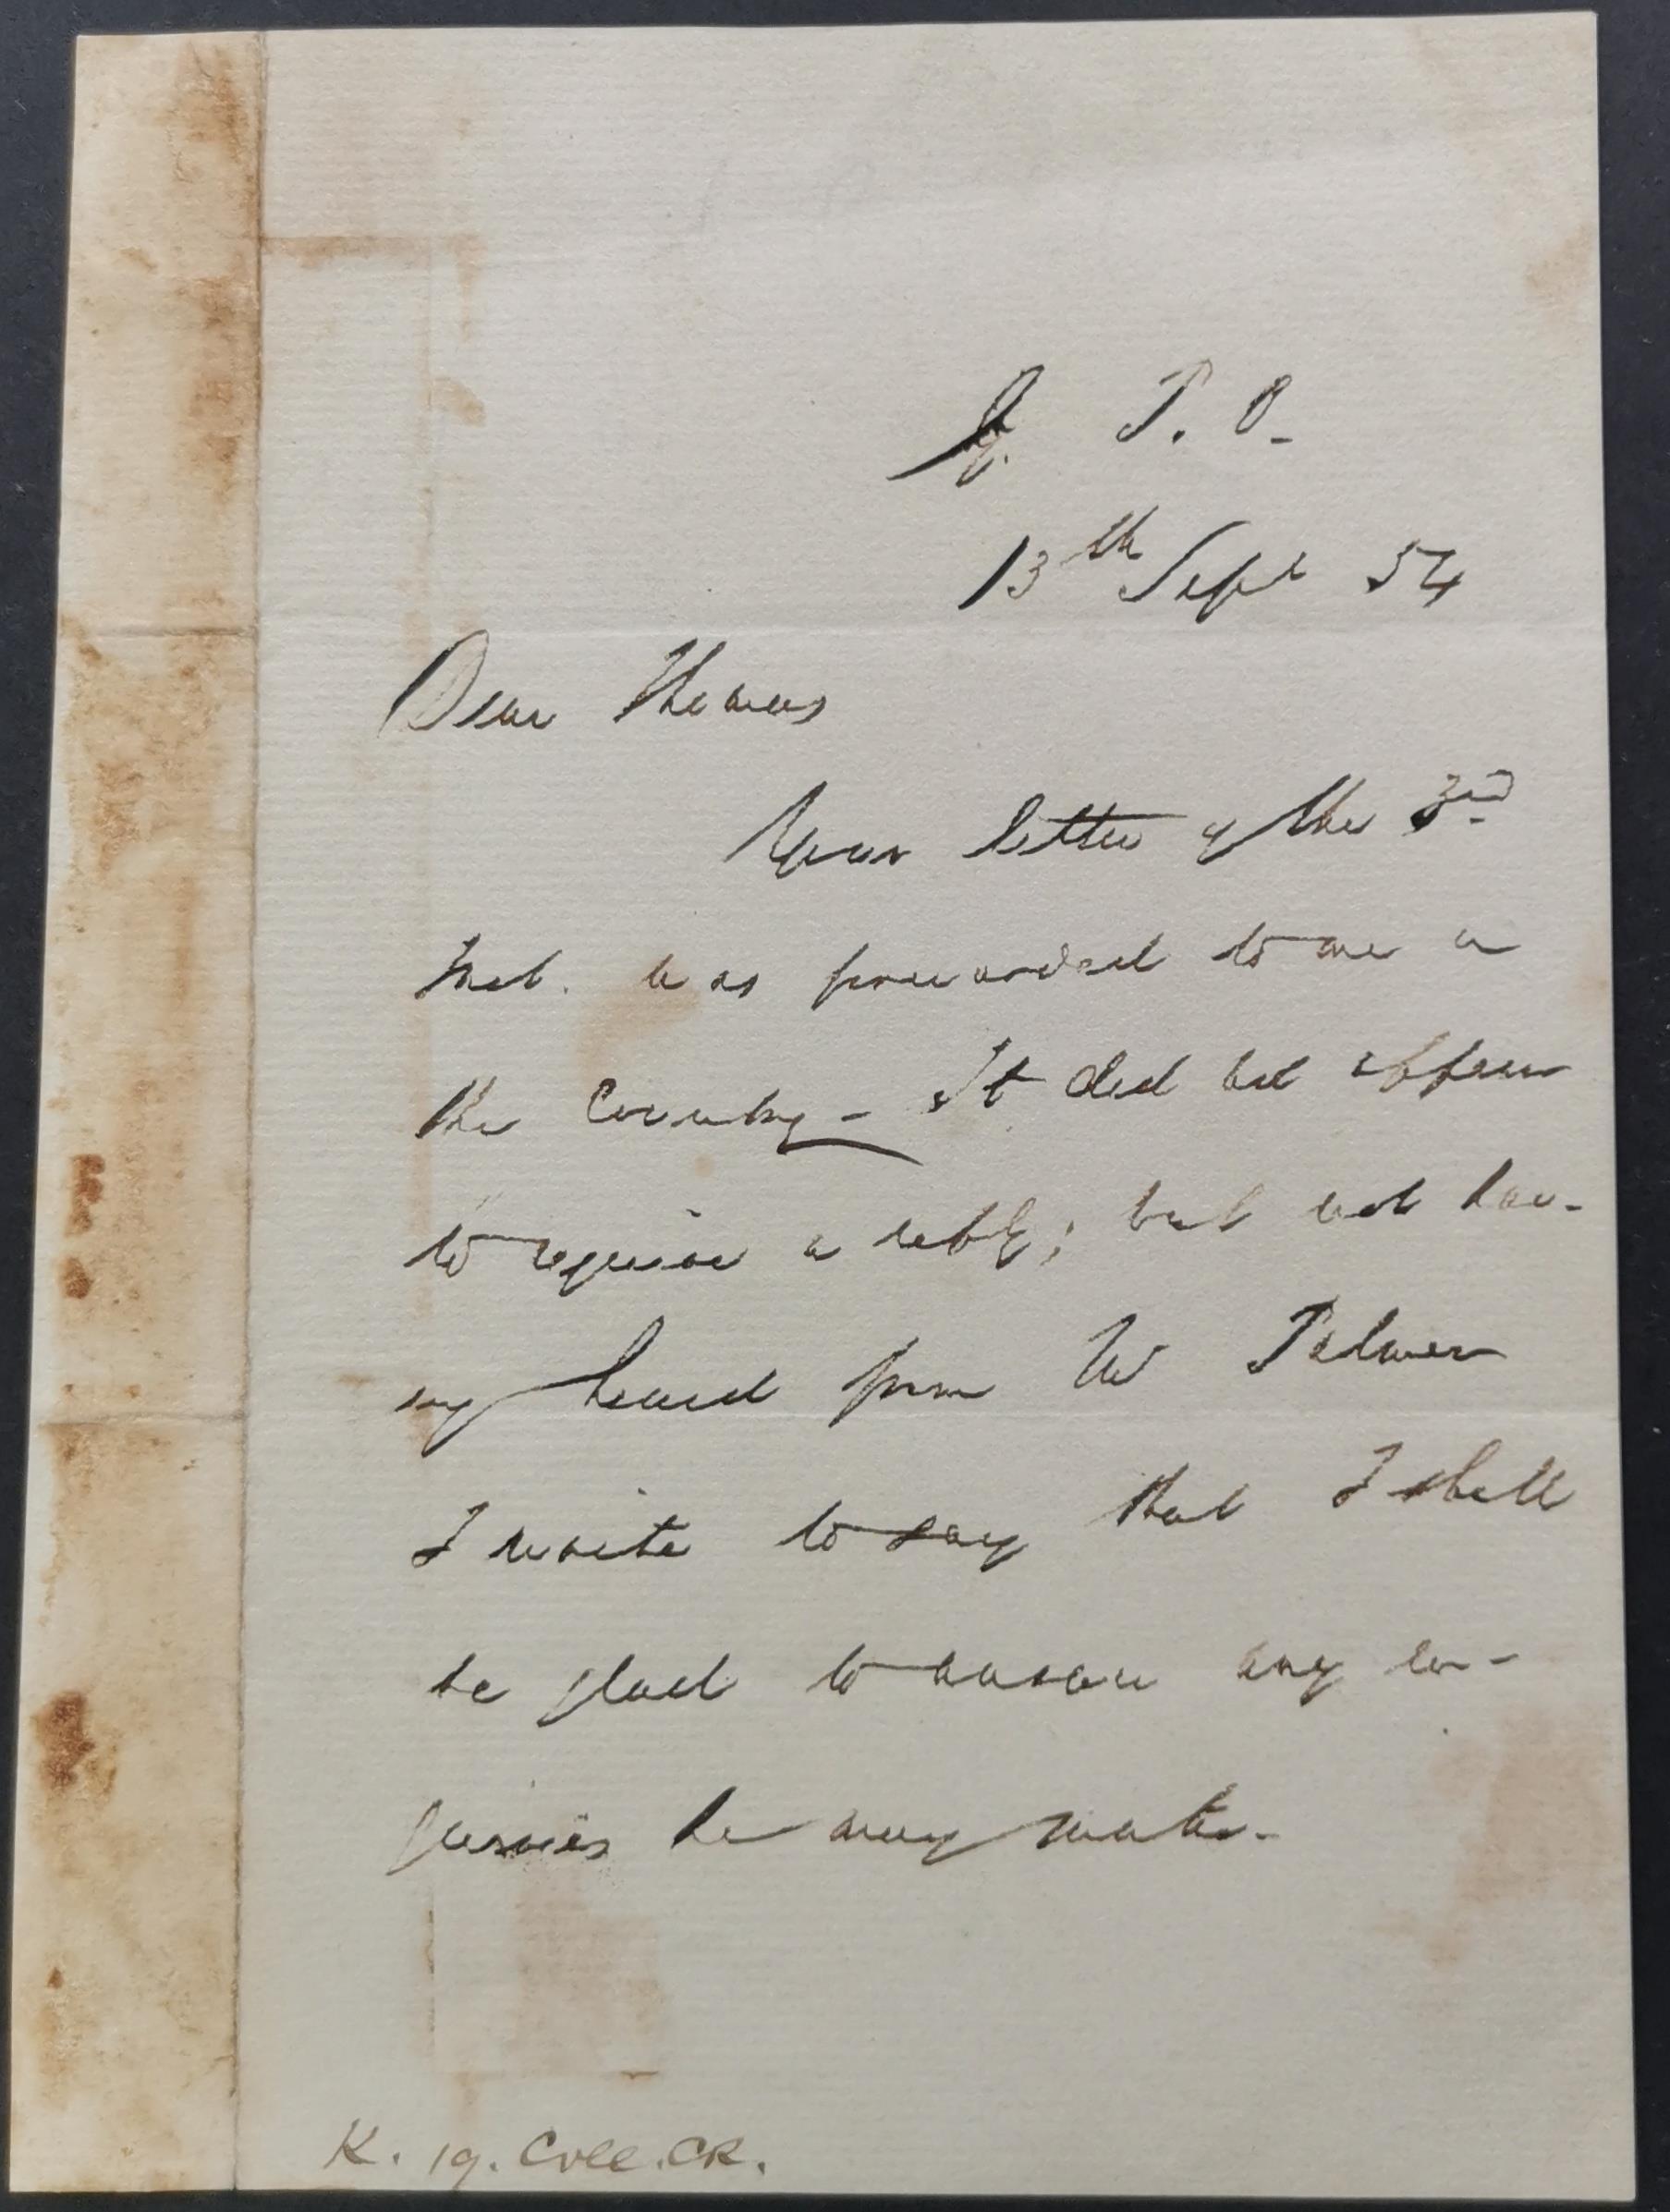 G. P. O.
13th Sept 54
Dear Thomas
Your letter of the 3rd
Inst. was forwarded to me in
the Country - It did not appear
to require a reply; but not hav-
ing heard from W Palmer
I write to say that I shall
be glad to answer any en-
quiries he may make.
K. 19. Coll. CR.